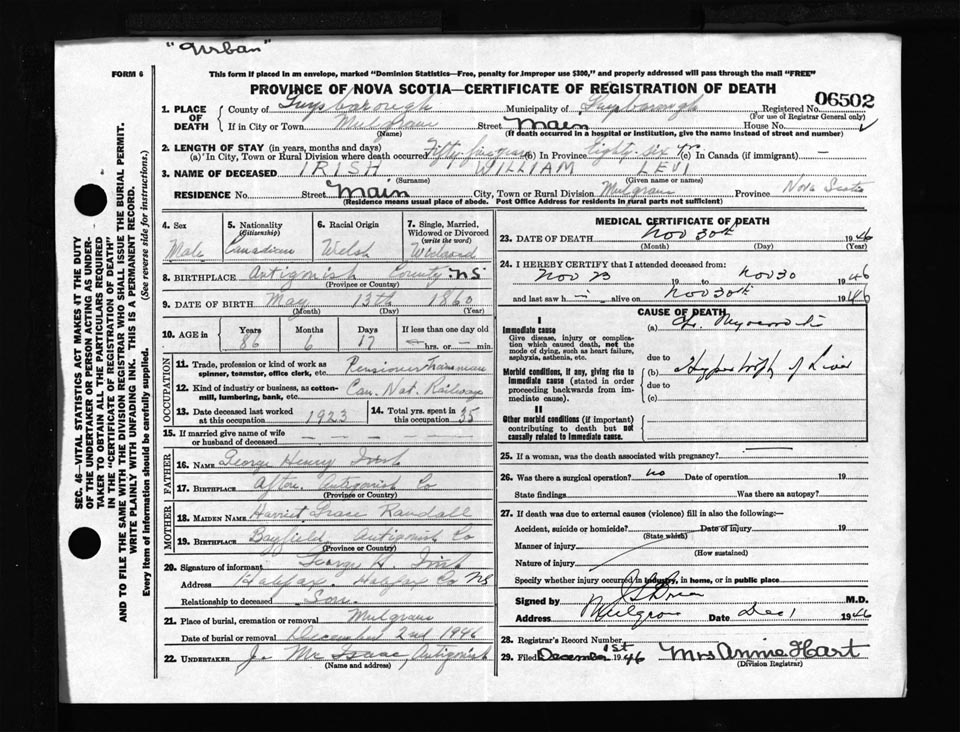 "Urban"
FORM 6
This form if placed in an envelope, marked "Dominion Statistics—Free, penalty for improper use $300," and properly addressed will pass through the mail "FREE"
PROVINCE OF NOVA SCOTIA—CERTIFICATE OF REGISTRATION OF DEATH
1. PLACE OF DEATH
County of Guysborough Municipality of Guysborough Registered No. 06502
(For use of Registrar General only)
If in City or Town Mulgrave Street Main House No.
(Name) (If death occurred in a hospital or institution, give the name instead of street and number)
2. LENGTH OF STAY (in years, months and days)
(a) In City, Town or Rural Division where death occurred Fifty five years (b) In Province Eighty-six yrs (c) In Canada (if immigrant) —
3. NAME OF DECEASED IRISH WILLIAM LEVI
(Surname) (Given name or names)
RESIDENCE No. Street Main City, Town or Rural Division Mulgrave Province Nova Scotia
(Residence means usual place of abode. Post Office Address for residents in rural parts not sufficient)
4. Sex 5. Nationality (Citizenship) 6. Racial Origin 7. Single, Married, Widowed or Divorced (write the word)
Male Canadian Welsh Widowed
8. BIRTHPLACE Antigonish County NS
(Province or County)
9. DATE OF BIRTH May 13th 1860
(Month) (Day) (Year)
10. AGE in Years Months Days If less than one day
86 6 17 — hrs. or — min.
OCCUPATION
11. Trade, profession or kind of work as spinner, teamster, office clerk, etc. Pensioner Trainman
12. Kind of industry or business, as cotton-mill, lumbering, bank, etc. Can. Nat. Railways
13. Date deceased last worked at this occupation 1923 14. Total yrs. spent in this occupation 35
15. If married give name of wife or husband of deceased — — — —
FATHER
16. NAME George Henry Irish
17. BIRTHPLACE Afton Antigonish Co
(Province or County)
MOTHER
18. MAIDEN NAME Harriet Grace Randall
19. BIRTHPLACE Bayfield Antigonish Co
(Province or County)
20. Signature of informant George H. Irish
Address Halifax. Halifax Co NS
Relationship to deceased Son
21. Place of burial, cremation or removal Mulgrave
Date of burial or removal December 2nd 1946
22. UNDERTAKER Mc Isaac, Antigonish
(Name and address)
MEDICAL CERTIFICATE OF DEATH
23. DATE OF DEATH Nov 30th 1946
(Month) (Day) (Year)
24. I HEREBY CERTIFY that I attended deceased from:
Nov 23 19 to Nov 30 1946
and last saw h i alive on Nov 30th 1946
CAUSE OF DEATH
I
Immediate cause (a) Chr. Myocarditis
Give disease, injury or complication which caused death, not the mode of dying, such as heart failure, asphyxia, asthenia, etc.
due to
Morbid conditions, if any, giving rise to immediate cause (stated in order proceeding backwards from immediate cause). (b) Hypertrophy of Liver
due to
(c)
II
Other morbid conditions (if important) contributing to death but not causally related to immediate cause.
25. If a woman, was the death associated with pregnancy? —
26. Was there a surgical operation? no Date of operation 19
State findings Was there an autopsy?
27. If death was due to external causes (violence) fill in also the following:—
Accident, suicide or homicide? Date of injury 19
(State which)
Manner of injury
(How sustained)
Nature of injury
Specify whether injury occurred in industry, in home, or in public place
Signed by M.D.
Address Mulgrave Date Dec 1 1946
28. Registrar's Record Number
29. Filed December 1st 1946 Mrs Annie Hart
(Division Registrar)
SEC. 46—VITAL STATISTICS ACT MAKES IT THE DUTY
OF THE UNDERTAKER OR PERSON ACTING AS UNDER-
TAKER TO OBTAIN ALL THE PARTICULARS REQUIRED
IN THE "CERTIFICATE OF REGISTRATION OF DEATH"
AND TO FILE THE SAME WITH THE DIVISION REGISTRAR WHO SHALL ISSUE THE BURIAL PERMIT.
WRITE PLAINLY WITH UNFADING INK. THIS IS A PERMANENT RECORD.
Every item of Information should be carefully supplied. (See reverse side for instructions.)